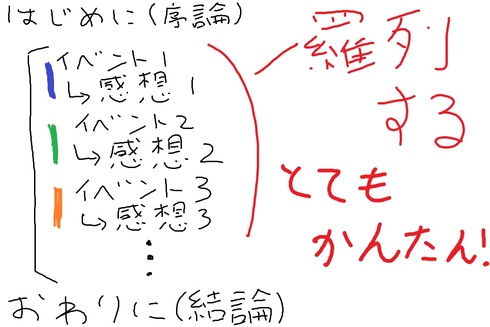 はじめに(序論)
イベント1
↳感想1
イベント2
↳感想2
イベント3
↳感想3
⋮
おわりに(結論)
羅列
する
とても
かんたん!